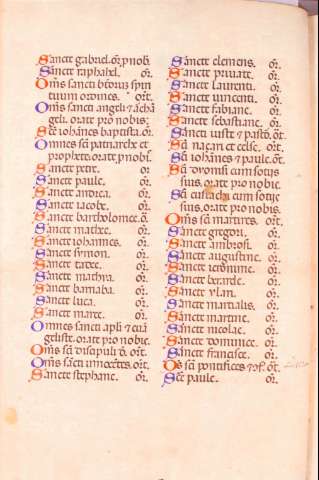 Sancte gabriel. or. p nob.
Sancte raphahel. or.
Oms sancti btorum spiri
tuum ordines. ort.
Omnes sancti angeli et archan
geli. orate pro nobis:
Sce iohannes baptista. or.
Omnes sci patriarche et
prophete. orate p nobis.
Sancte petre. or.
Sancte paule. or.
Sancte andrea. or.
Sancte iacobe. or.
Sancte bartholomee. o.
Sancte mathee. or.
Sancte iohannes. or.
Sancte symon. or.
Sancte tadee. or.
Sancte mathya. or.
Sancte barnaba. or.
Sancte luca. or.
Sancte marce. or.
Omnes sancti apli et eua
geliste. orate pro nobis.
Oms sci discipuli d. ort.
Oms sancti innocetes. ort.
Sancte stephane. or.
Sancte clemens. or.
Sancte priuate. or.
Sancte laurenti. or.
Sancte uincenti. or.
Sancte fabiane. or.
Sancte sebastiane. or.
Sancti iuste et pastor. ort.
Sci nazari et celse. ort.
Sci iohanes et paule. ort.
Sci dyonisi cum sotijs
suis. orate pro nobis.
Sci eustachi cum sotijs
suis. orate pro nobis.
Oms sci martires. ort.
Sancte gregori. or.
Sancte ambrosi. or.
Sancte augustine. or.
Sancte ieronime. or.
Sancte berarde. or.
Sancte ylari. or.
Sancte martialis. or.
Sancte martine. or.
Sancte nicolae. or.
Sancte dominice. or.
Sancte francisce. or.
Os sci pontifices et 9f. ort.
Sce paule. or.